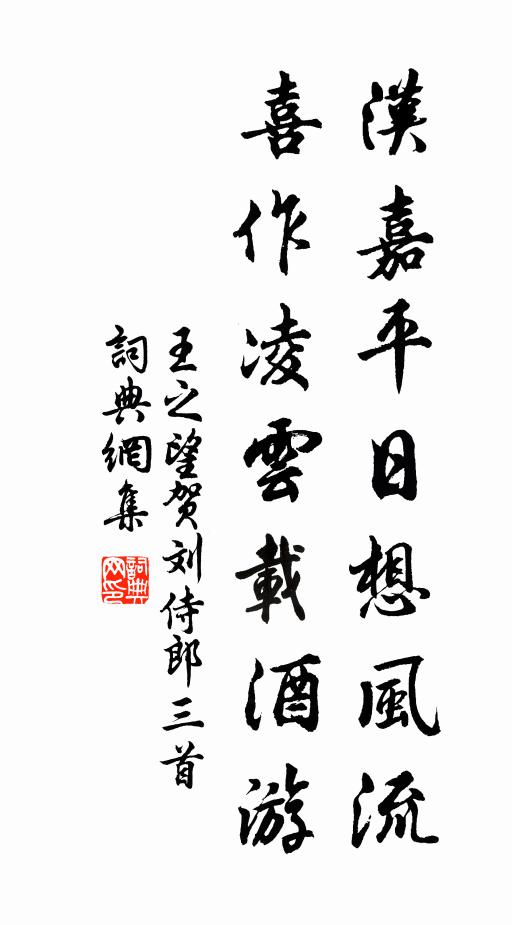 漢嘉平日想風流
喜作凌雲載酒游
王之望贺刘侍郎三首
詞典網集
詞典网印